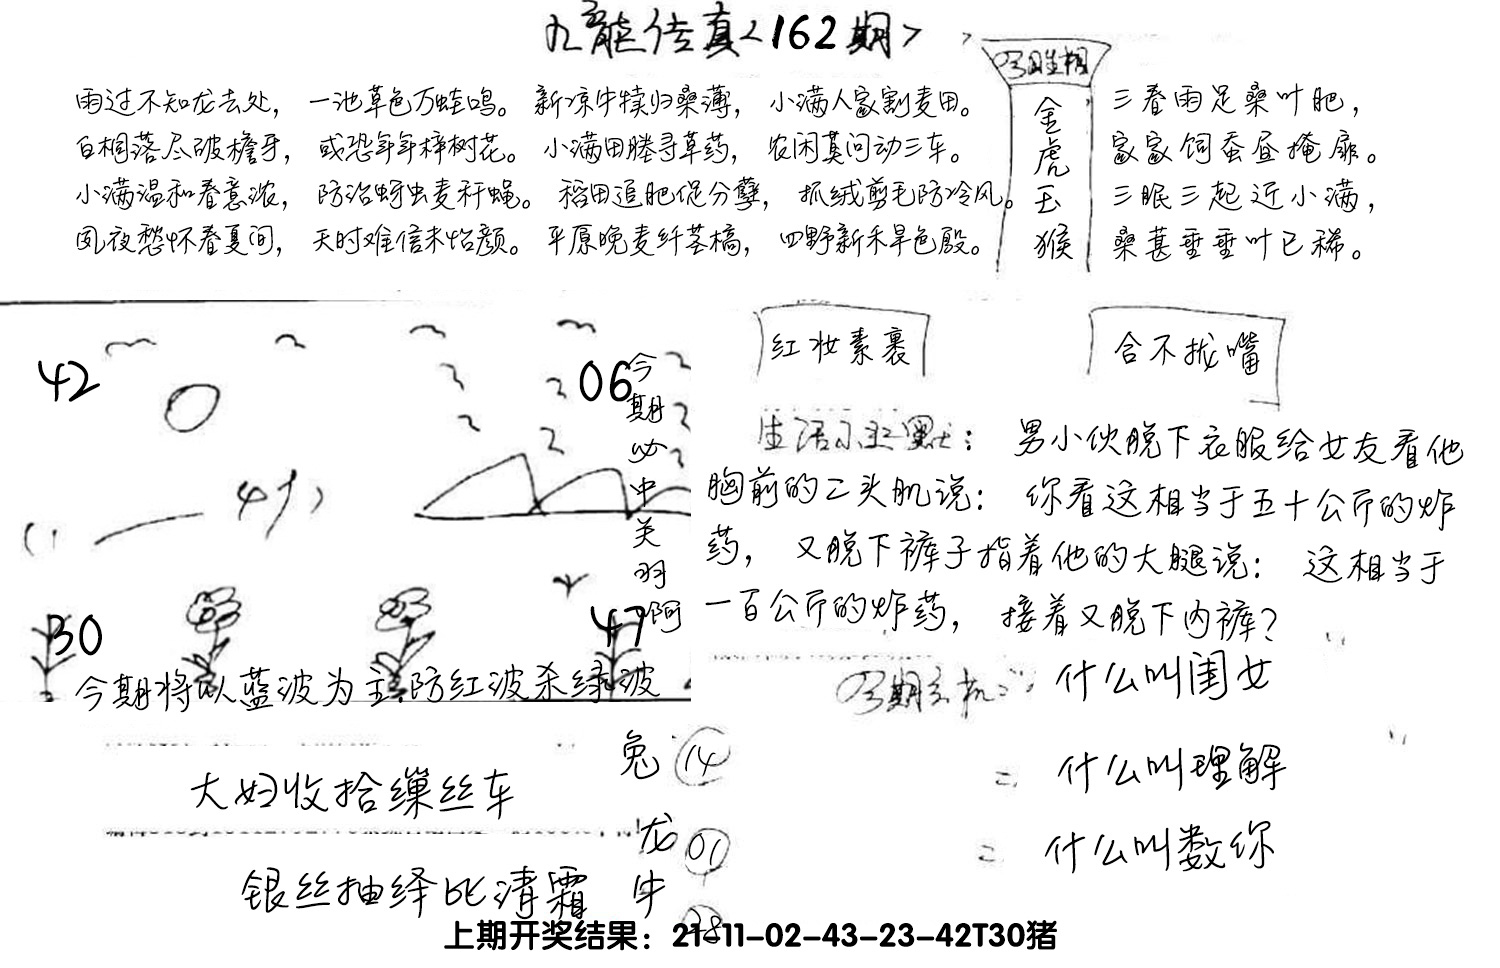 九龙传真<162期>
雨过不知龙去处， 一池草色万蛙鸣。 新凉牛犊归桑薄， 小满人家割麦田。
白桐落尽破檐牙， 或恐年年梓树花。 小满田塍寻草药， 农闲莫问动三车。
小满温和春意浓， 防治蚜虫麦秆蝇。 稻田追肥促分孽， 抓绒剪毛防冷风。
夙夜愁怀春夏间， 天时难信未怡颜。 平原晚麦纤茎槁， 四野新禾旱色殷。
金
虎
玉
猴
三春雨足桑叶肥，
家家饲蚕昼掩扉。
三眠三起近小满，
桑葚垂垂叶已稀。
42
06
今期必中关羽啊
30
47
今期将以蓝波为主防红波杀绿波
红妆素裹
合不拢嘴
生活小幽默： 男小伙脱下衣服给女友看他
胸前的二头肌说： 你看这相当于五十公斤的炸
药， 又脱下裤子指着他的大腿说： 这相当于
一百公斤的炸药， 接着又脱下内裤？
什么叫闺女
= 什么叫理解
= 什么叫数你
大妇收拾缫丝车
银丝抽绎比清霜
兔 14
龙 01
牛 28
上期开奖结果：21-11-02-43-23-42T30猪